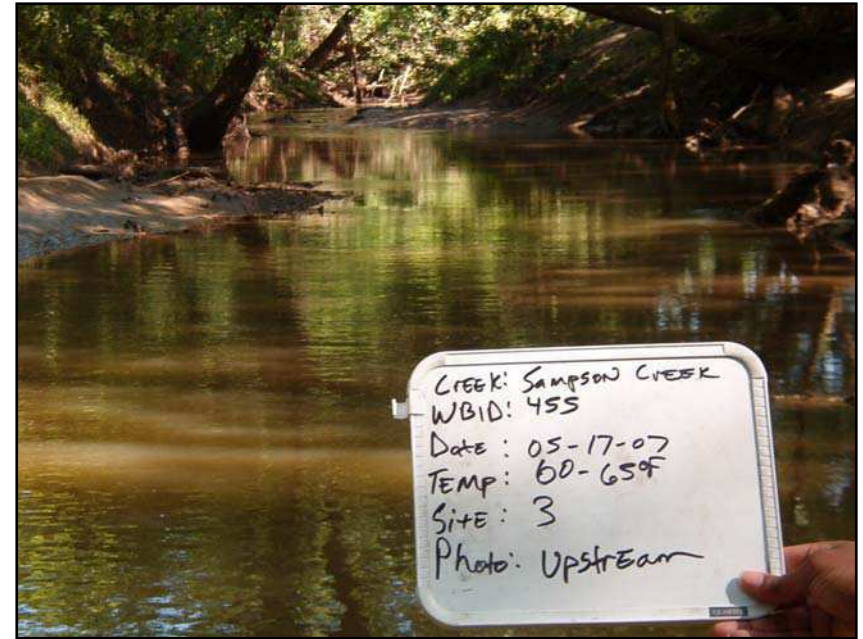 Creek: Sampson Creek
WBID: 455
Date: 05-17-07
Temp: 60-65°F
Site: 3
Photo: Upstream